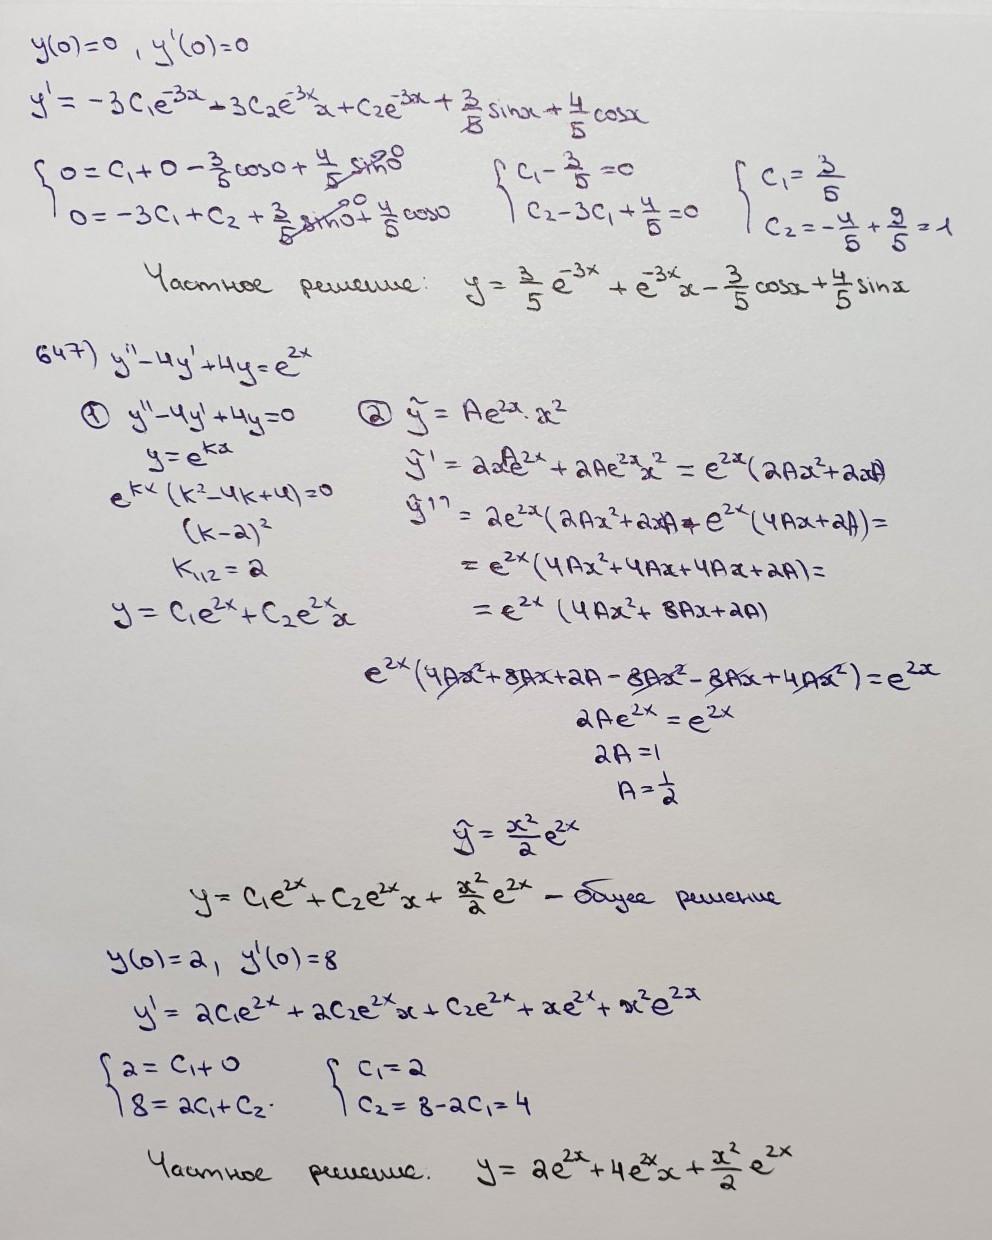 y(0)=0 , y'(0)=0
y' = -3C₁e⁻³ˣ - 3C₂e⁻³ˣx + C₂e⁻³ˣ + 3/5 sinx + 4/5 cosx
{ 0 = C₁ + 0 - 3/5 cos0 + 4/5 sin0⁰ { C₁ - 3/5 = 0 { C₁ = 3/5
0 = -3C₁ + C₂ + 3/5 sin0⁰ + 4/5 cos0 C₂ - 3C₁ + 4/5 = 0 C₂ = -4/5 + 9/5 = 1
Частное решение: y = 3/5 e⁻³ˣ + e⁻³ˣx - 3/5 cosx + 4/5 sinx
647) y'' - 4y' + 4y = e²ˣ
① y'' - 4y' + 4y = 0 ② ỹ = Ae²ˣ·x²
y = eᵏˣ ỹ' = 2xAe²ˣ + 2Ae²ˣx² = e²ˣ(2Ax² + 2xA)
eᵏˣ(k² - 4k + 4) = 0 ỹ'' = 2e²ˣ(2Ax² + 2xA + e²ˣ(4Ax + 2A) =
(k-2)² = e²ˣ(4Ax² + 4Ax + 4Ax + 2A) =
k₁,₂ = 2 = e²ˣ (4Ax² + 8Ax + 2A)
y = C₁e²ˣ + C₂e²ˣx
e²ˣ(4Ax² + 8Ax + 2A - 8Ax² - 8Ax + 4Ax²) = e²ˣ
2Ae²ˣ = e²ˣ
2A = 1
A = 1/2
ỹ = x²/2 e²ˣ
y = C₁e²ˣ + C₂e²ˣx + x²/2 e²ˣ – общее решение
y(0) = 2, y'(0) = 8
y' = 2C₁e²ˣ + 2C₂e²ˣx + C₂e²ˣ + xe²ˣ + x²e²ˣ
{ 2 = C₁ + 0 { C₁ = 2
8 = 2C₁ + C₂. C₂ = 8 - 2C₁ = 4
Частное решение. y = 2e²ˣ + 4e²ˣx + x²/2 e²ˣ